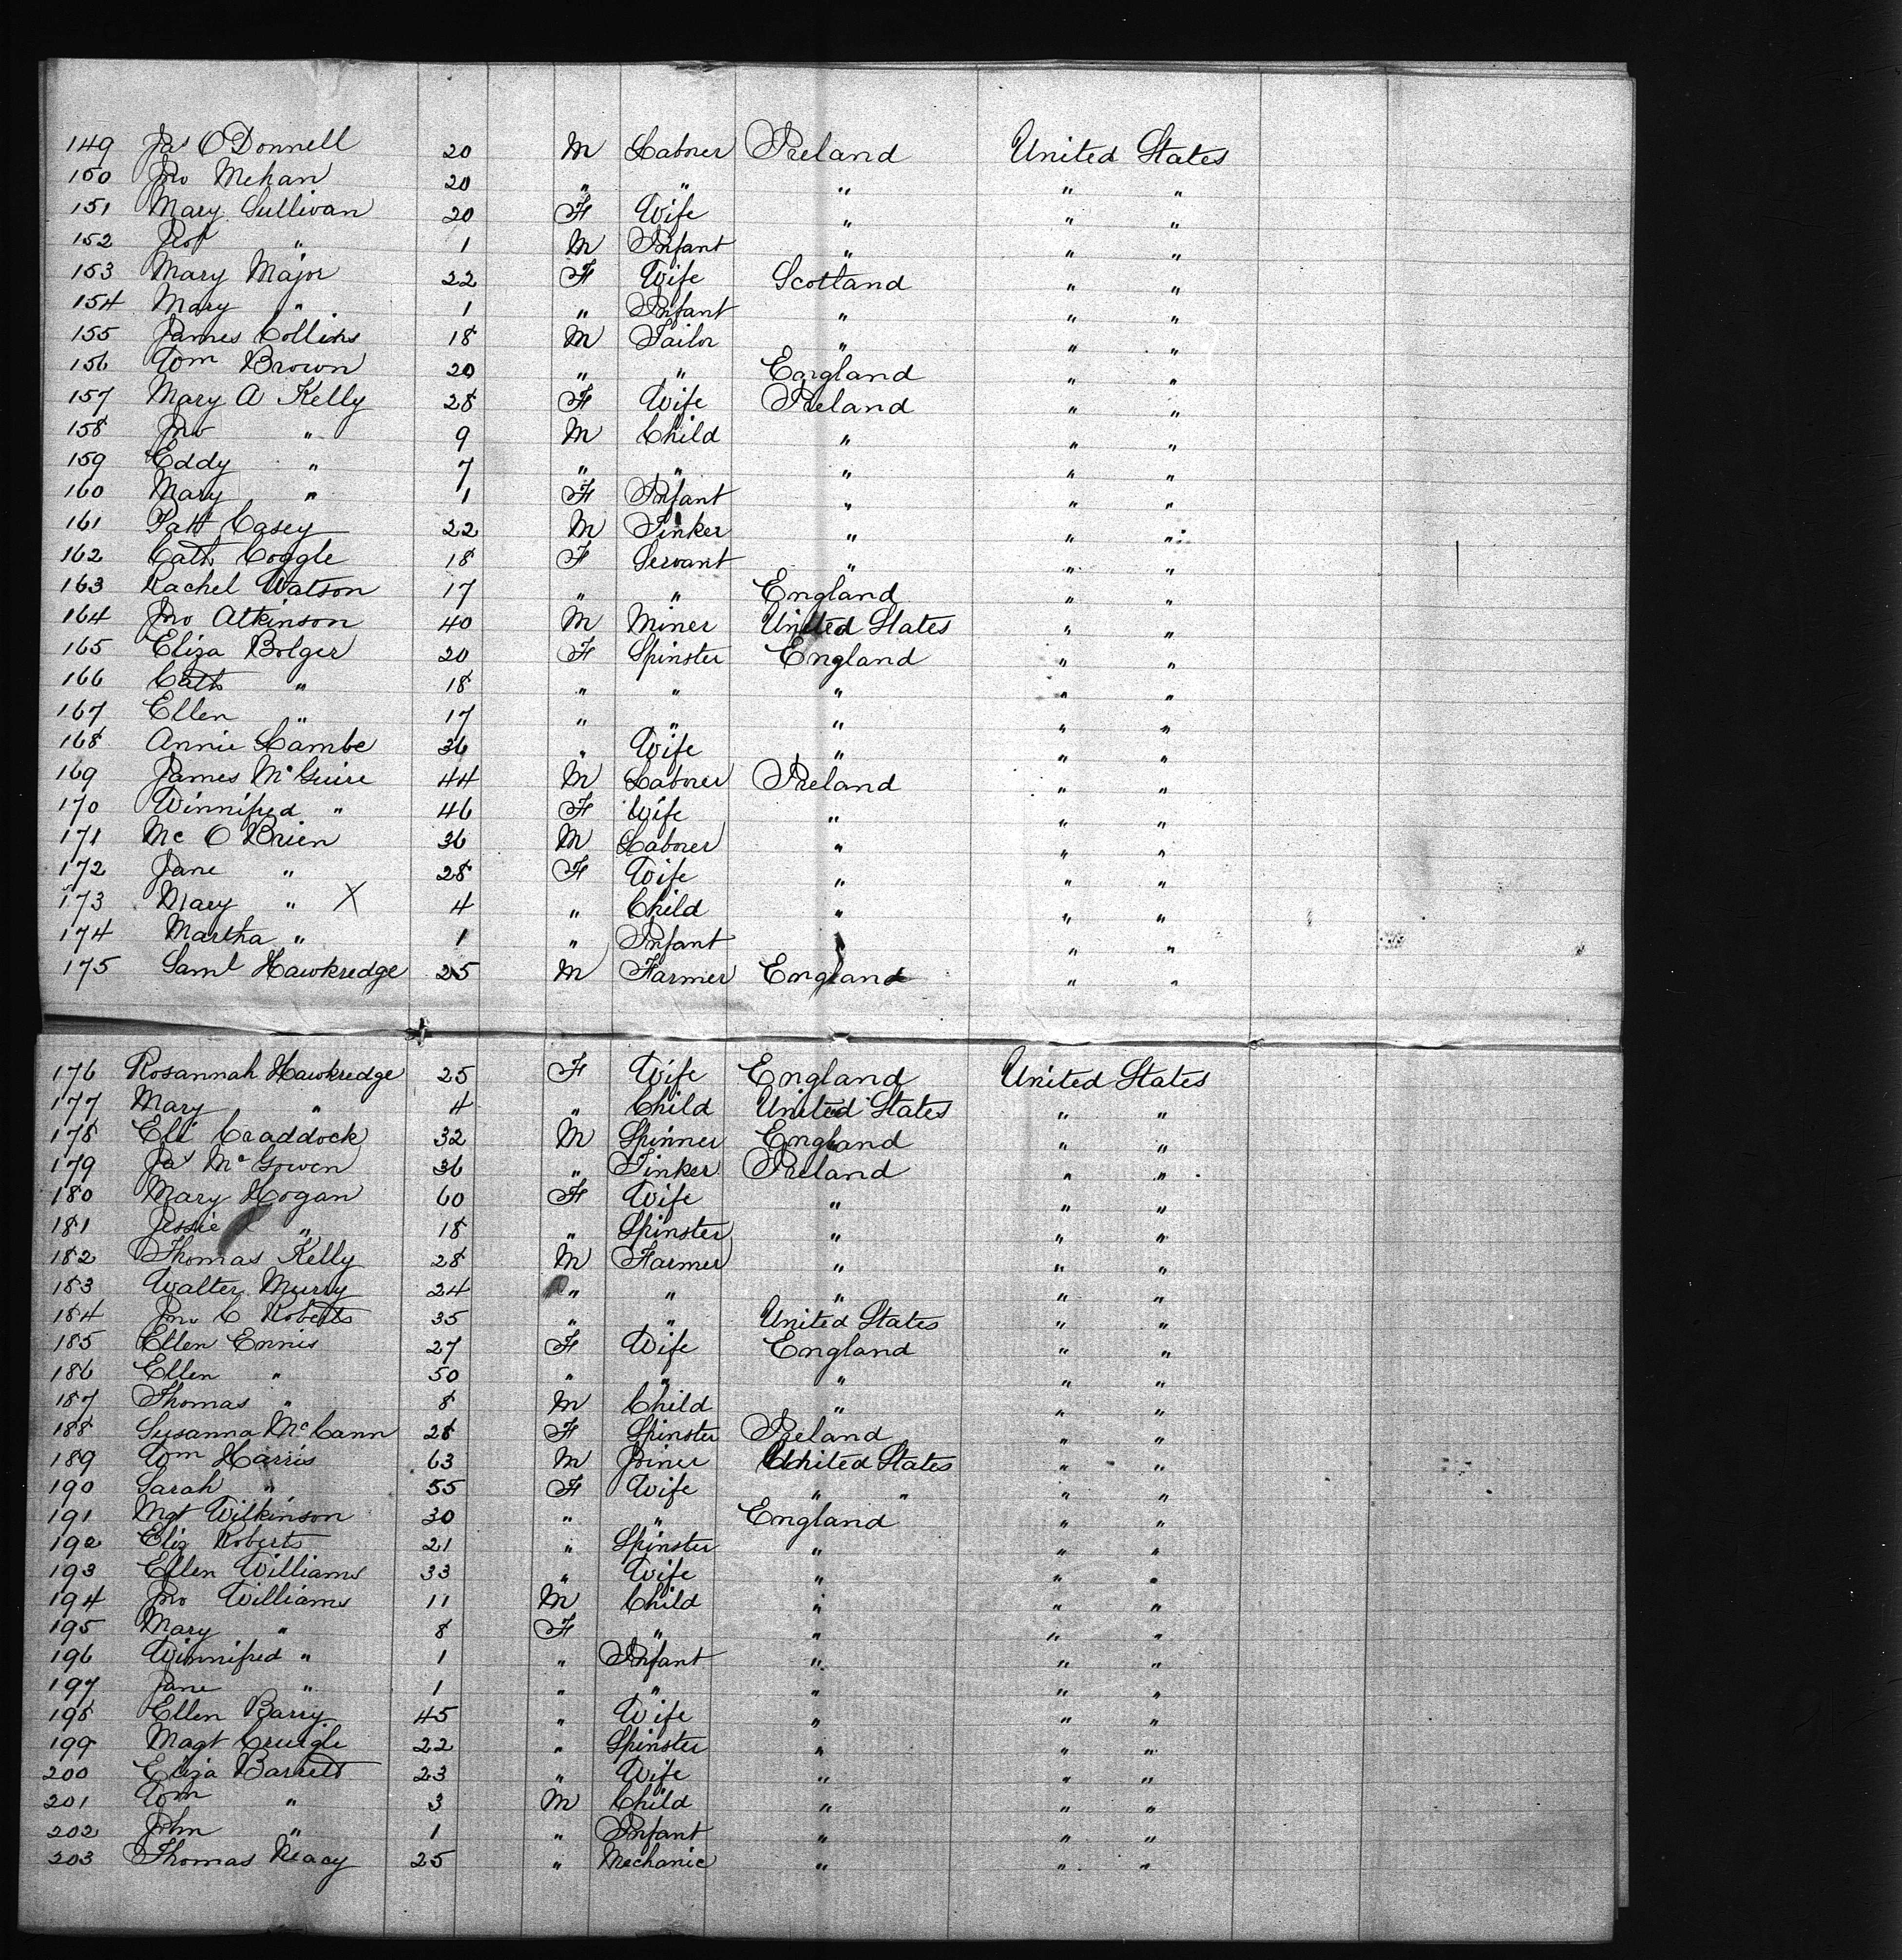 149 Jas O'Donnell 20 M Laborer Ireland United States
150 Jno Mehan 20 " " " " "
151 Mary Sullivan 20 F Wife " " "
152 " 1 M Infant " " "
153 Mary Major 22 F Wife Scotland " "
154 Mary " 1 " Infant " " "
155 James Collins 18 M Tailor " " "
156 Wm Brown 20 " " England " "
157 Mary A Kelly 28 F Wife Ireland " "
158 Jno " 9 M Child " " "
159 Eddy " 7 " " " " "
160 Mary " 1 F Infant " " "
161 Patt Casey 22 M Tinker " " "
162 Cath Coggle 18 F Servant " " "
163 Rachel Watson 17 " " England " "
164 Jno Atkinson 40 M Miner United States " "
165 Eliza Bolger 20 F Spinster England " "
166 Cath " 18 " " " " "
167 Ellen " 17 " " " " "
168 Annie Lambe 36 " Wife " " "
169 James McGuire 44 M Laborer Ireland " "
170 Winnifred " 46 F Wife " " "
171 Mc O'Brien 36 M Laborer " " "
172 Jane " 28 F Wife " " "
173 Mary " X 4 " Child " " "
174 Martha " 1 " Infant " " "
175 Saml Hawkredge 25 M Farmer England " "
176 Rosannah Hawkredge 25 F Wife England United States
177 Mary " 4 " Child United States " "
178 Eli Craddock 32 M Spinner England " "
179 Jas McGowen 36 " Tinker Ireland " "
180 Mary Hogan 60 F Wife " " "
181 Jessie " 18 " Spinster " " "
182 Thomas Kelly 28 M Farmer " " "
183 Walter Murry 24 " " " " "
184 Jno C Roberts 35 " " United States " "
185 Ellen Ennis 27 F Wife England " "
186 Ellen " 50 " " " " "
187 Thomas " 8 M Child " " "
188 Susanna McCann 28 F Spinster Ireland " "
189 Wm Harris 63 M Joiner United States " "
190 Sarah " 55 F Wife " " " "
191 Mgt Wilkinson 30 " " England " "
192 Eliz Roberts 21 " Spinster " " "
193 Ellen Williams 33 " Wife " " "
194 Jno Williams 11 M Child " " "
195 Mary " 8 F " " " "
196 Winnifred " 1 " Infant " " "
197 Jane " 1 " " " " "
198 Ellen Barry 45 " Wife " " "
199 Magt 22 " Spinster " " "
200 Eliza Barrett 23 " Wife " " "
201 Wm " 3 M Child " " "
202 John " 1 " Infant " " "
203 Thomas 25 " Mechanic " " "